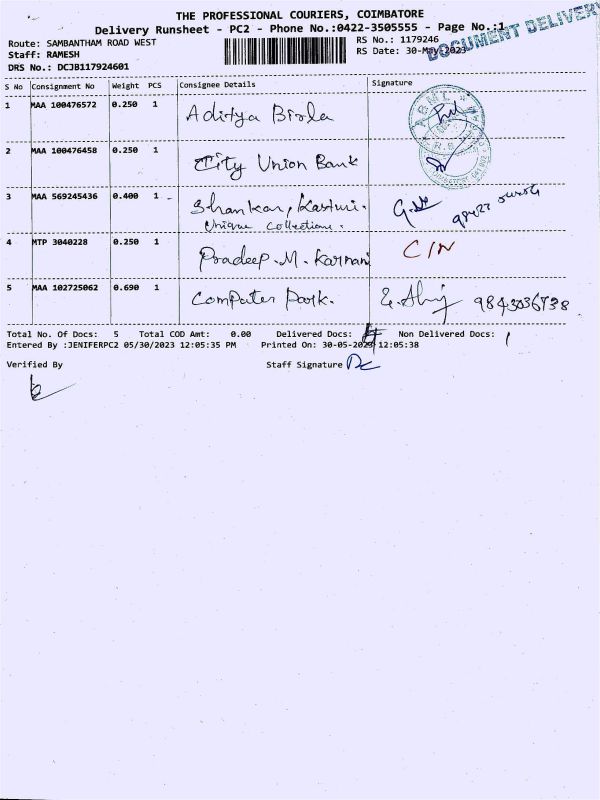 THE PROFESSIONAL COURIERS, COIMBATORE
Delivery Runsheet - PC2 - Phone No.:0422-3505555 - Page No.:1
DOCUMENT DELIVERY
Route: SAMBANTHAM ROAD WEST
Staff: RAMESH
DRS No.: DCJB117924601
RS No.: 1179246
RS Date: 30-May-2023
S No Consignment No Weight PCS Consignee Details Signature
1 MAA 100476572 0.250 1 Aditya Birla
2 MAA 100476458 0.250 1 City Union Bank
3 MAA 569245436 0.400 1 Shankar, Kasturi.
Unique Collections.
4 MTP 3040228 0.250 1 Pradeep. M. Karnani C/N
5 MAA 102725062 0.690 1 Computer Park. 9843036738
Total No. Of Docs: 5 Total COD Amt: 0.00 Delivered Docs: 4 Non Delivered Docs: 1
Entered By :JENIFERPC2 05/30/2023 12:05:35 PM Printed On: 30-05-2023 12:05:38
Verified By Staff Signature